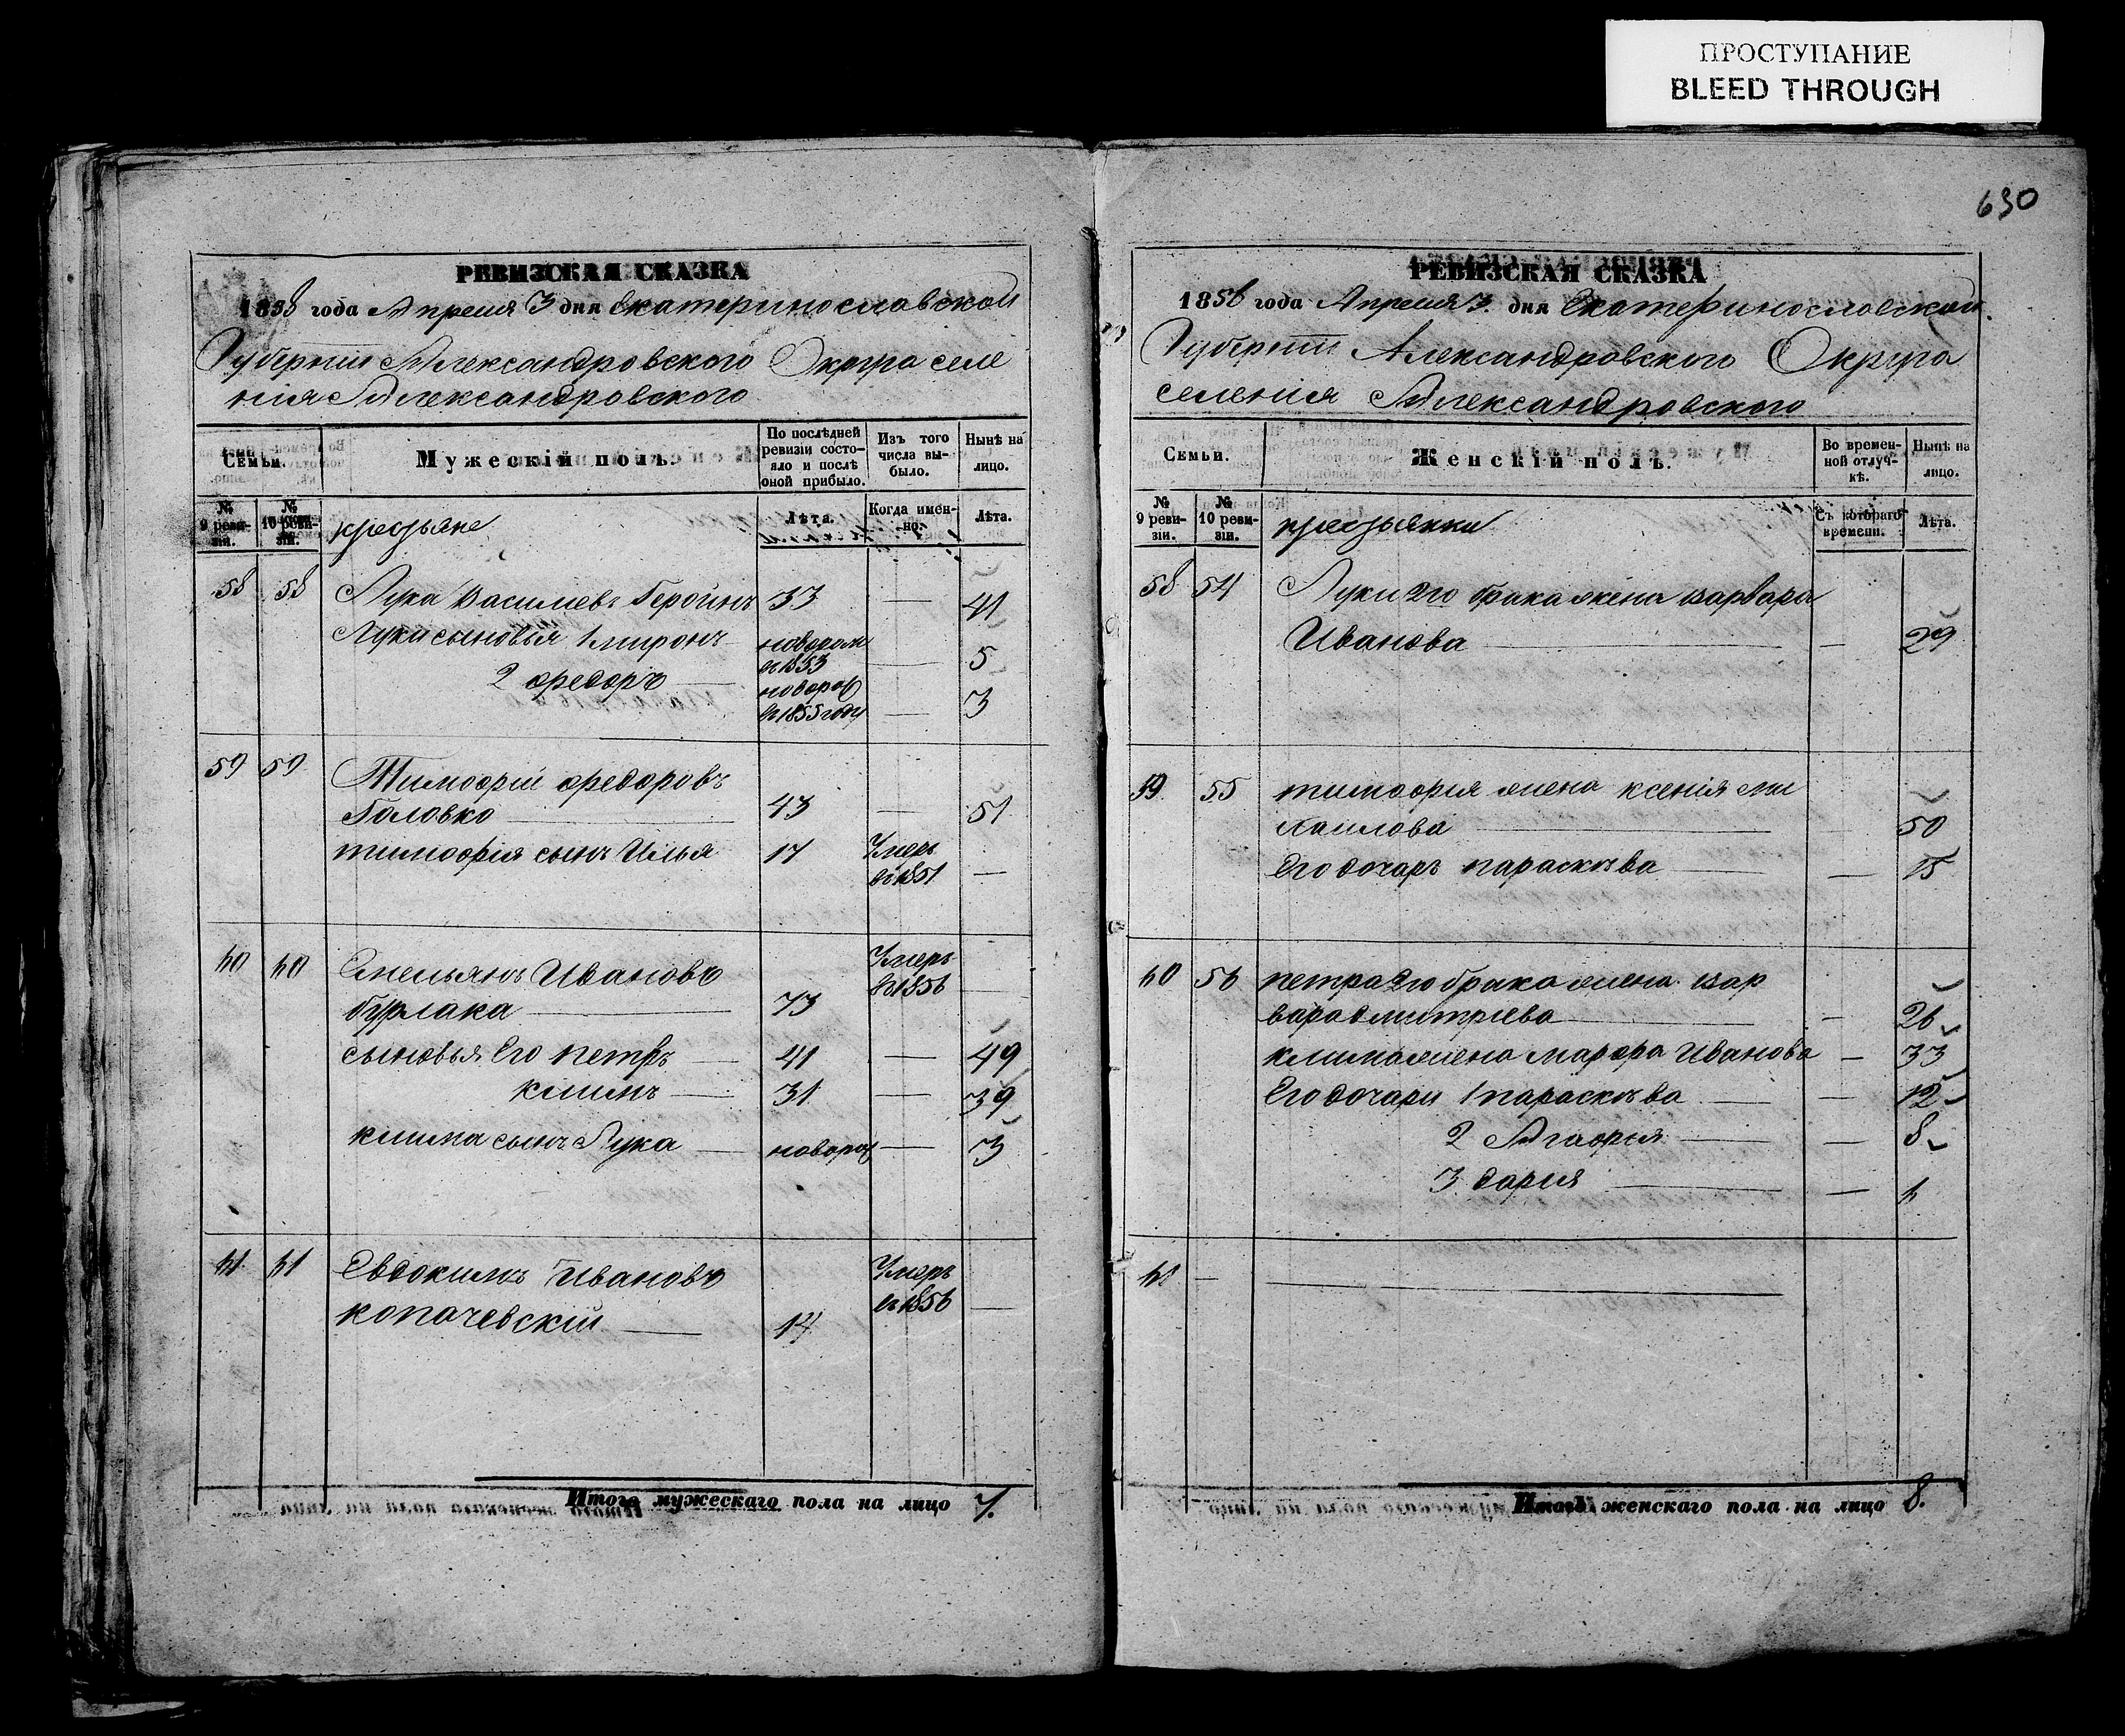 ПРОСТУПАНИЕ
BLEED THROUGH
630
РЕВИЗСКАЯ СКАЗКА
1858 года Апреля 3 дня Екатеринославской
Губернии Александровского Округа селе
нія Александровского
Семьи.
Мужескій полъ.
По послѣдней ревизіи состояло и послѣ оной прибыло.
Изъ того числа выбыло.
Нынѣ на лицо.
№ 9 ревизіи.
№ 10 ревизіи.
крестьяне
Лѣта.
Когда именно.
Лѣта.
58 58 Лука Васильевъ 33 — 41
Луки сыновья 1 миронъ новорож в 1853 — 5
2 федоръ — новорож в 1855 году — 3
59 59 Тимофѣй федоровъ
Головко — 43 — 51
тимофея сынъ Илья 17 Умеръ в 1851 —
60 60 Емельянъ Ивановъ
бурлака — 73 Умеръ в 1856 —
сыновья Его петръ — 41 — 49
климъ — 31 — 39
клима сынъ Лука — новорож — 3
61 61 Евдокимъ Ивановъ
копачевскій — 14 Умеръ в 1856 —
Итого мужескаго пола на лицо 7.
РЕВИЗСКАЯ СКАЗКА
1858 года Апреля 3. дня Екатеринославской.
Губерніи Александровского Округа
селенія Александровского
Семьи.
Женскій полъ.
Во временной отлучкѣ.
Нынѣ на лицо.
№ 9 ревизіи.
№ 10 ревизіи.
крестьянки
Съ котораго времени.
Лѣта.
58 54 Луки 2го брака жена варвара
Иванова — — 29
59 55 тимофея жена ксенія ми
хаилова — 50
Его дочерь параскева — — 15
60 56 петра 2го брака жена вар
вара дмитріева — — 26
клима жена марфа Иванова — 33
Его дочери 1 параскева — — 12
2 Агафия — — 8
3 дария — — 6
61 — —
Итого женскаго пола на лицо 8.